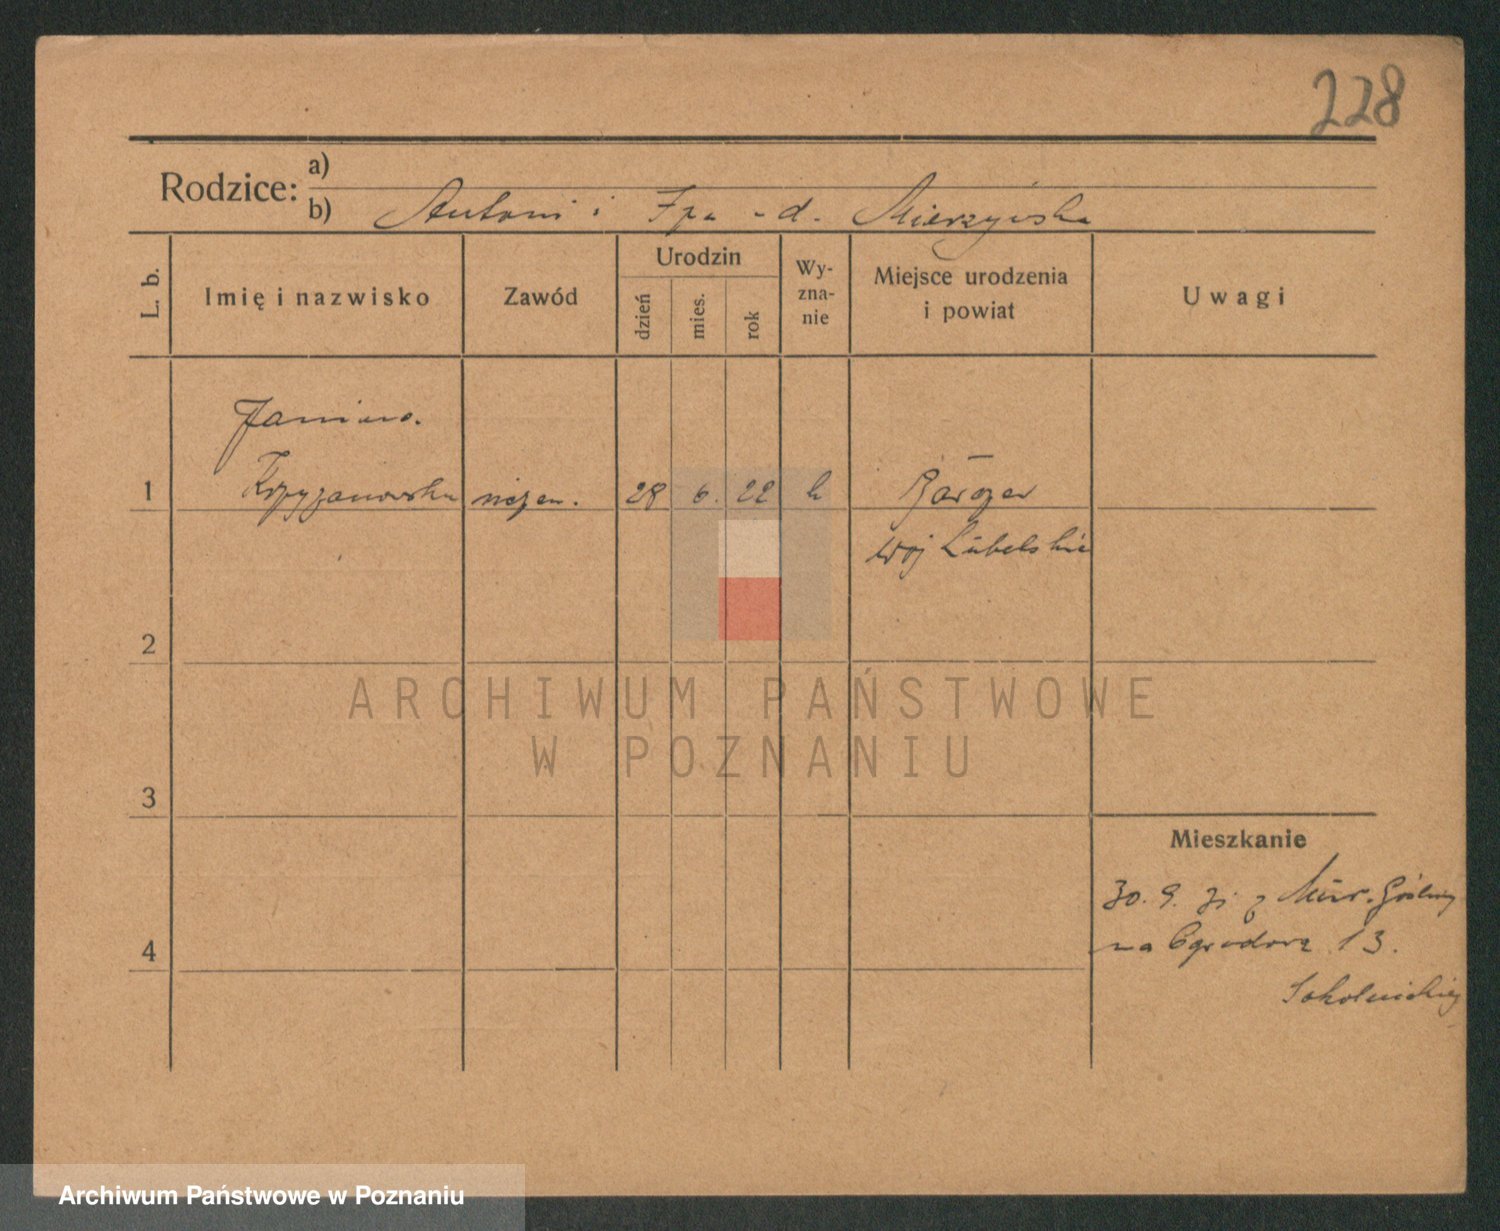 228
Rodzice: a)
b) Antoni i d. Mierzyńska
L. b.
Imię i nazwisko
Zawód
Urodzin
dzień
mies.
rok
Wy-
zna-
nie
Miejsce urodzenia
i powiat
Uwagi
Janina
1 Krzyżanowska uczen. 28 6. 22
woj Lubelskie
2
ARCHIWUM PAŃSTWOWE
W POZNANIU
3
Mieszkanie
30. 9. z Mur. Gośliny
na Ogrodową 13.
4
Archiwum Państwowe w Poznaniu